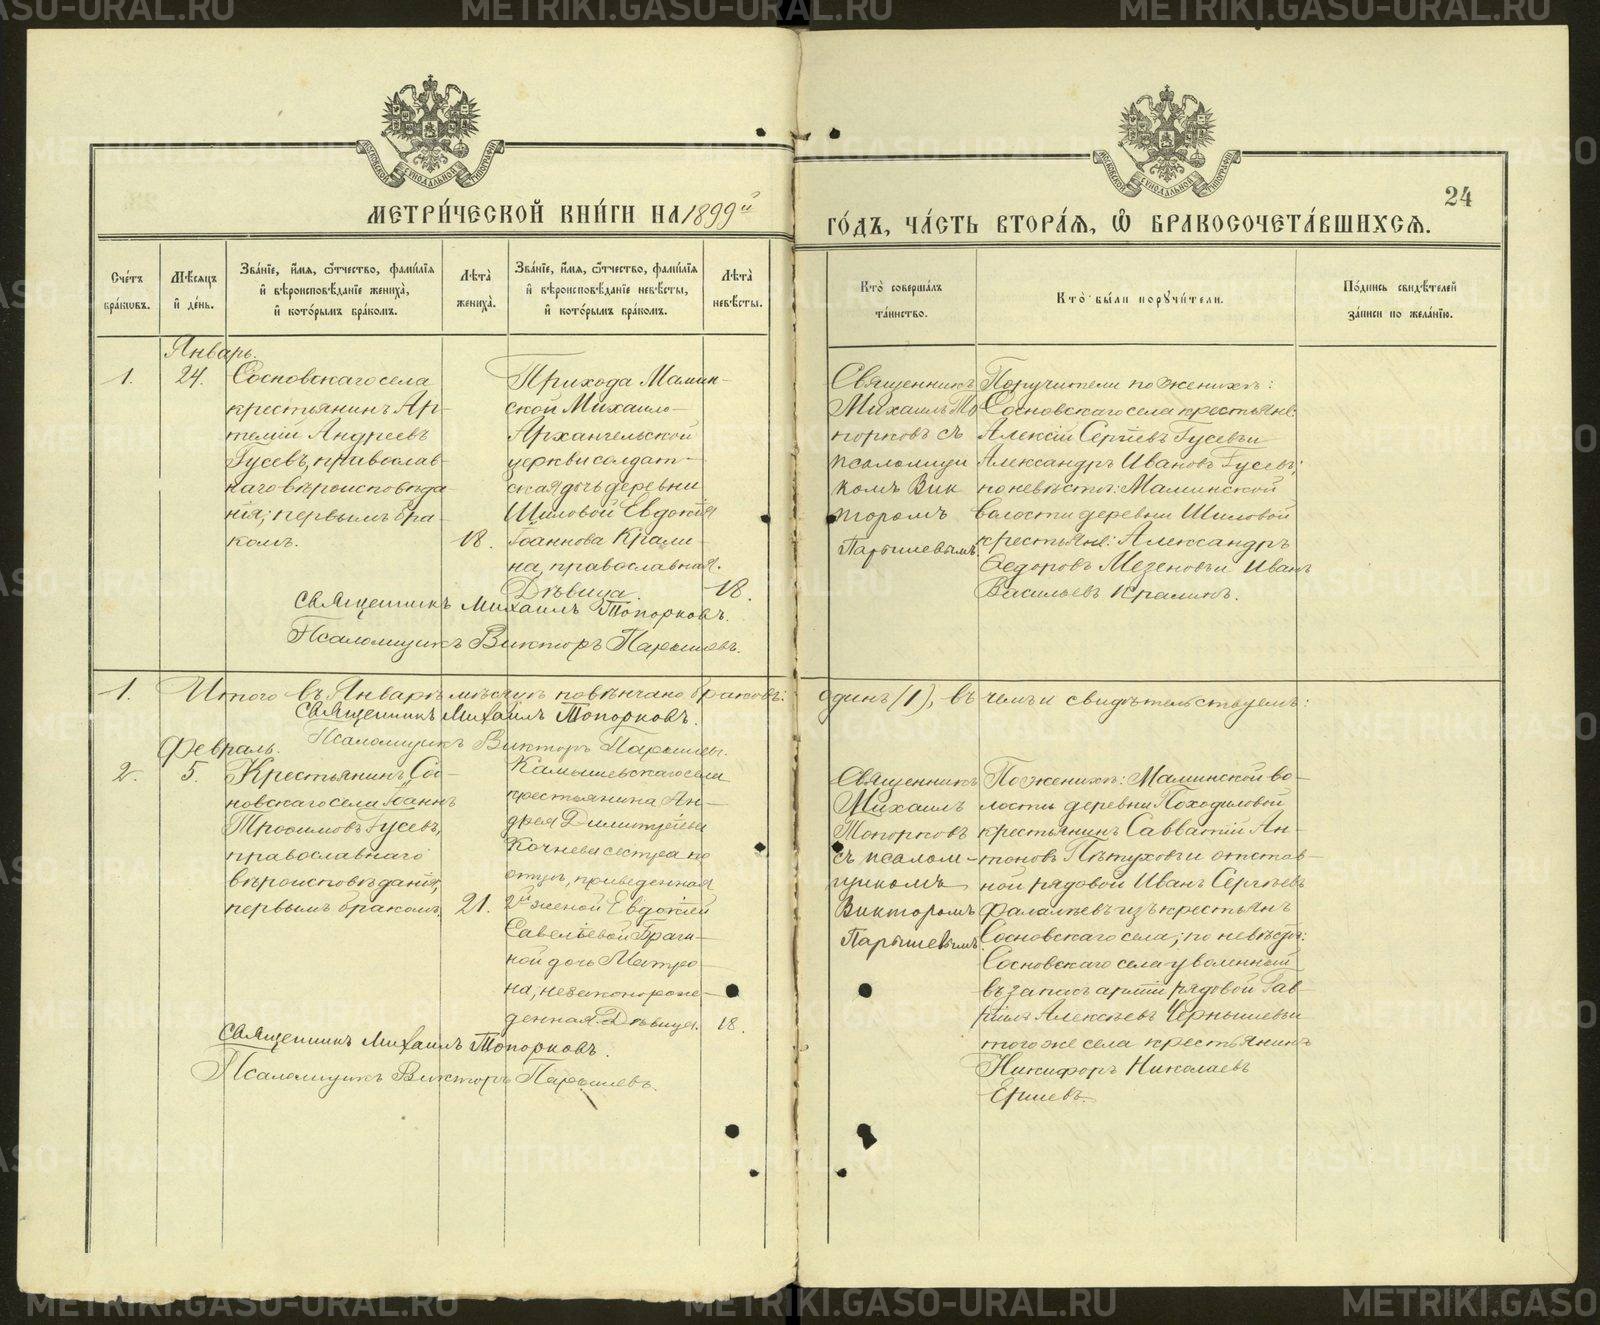 МЕТРИ́ЧЕСКОЙ КНИ́ГИ НА 1899й
ГО́ДЪ, ЧА́СТЬ ВТОРА́Я, Ѿ БРАКОСОЧЕТА́ВШИХСЯ.
24
Сче́тъ бра́ковъ.
Мѣ́сяцъ и де́нь.
Зва́нїе, и́мя, ѻ́тчество, фами́лїя и вѣроисповѣ́данїе жениха̀, и кото́рымъ бра́комъ.
Лѣта̀ жениха̀.
Зва́нїе, и́мя, ѻ́тчество, фами́лїя и вѣроисповѣ́данїе невѣ́сты, и кото́рымъ бра́комъ.
Лѣта̀ невѣ́сты.
Кто̀ соверша́лъ та́инство.
Кто̀ бы́ли поручи́тели.
По́дпись свидѣ́телей за́писи по жела́нїю.
Январь.
1.
24.
Сосновскаго села
крестьянинъ Ар-
темій Андреевъ
Гусевъ, православ-
наго вѣроисповѣда-
нія; первымъ бра-
комъ.
18.
Прихода Мамин-
ской Михаило-
Архангельской
церкви солдат-
ская дочь деревни
Шиловой Евдокія
Іоаннова Крали-
на, православная.
Дѣвица.
18.
Священникъ
Михаилъ То
порковъ съ
псаломщи
комъ Вик
торомъ
Парышевымъ
Поручители по женихѣ:
Сосновскаго села крестьяне:
Алексій Сергіевъ Гусевъ и
Александръ Ивановъ Гусевъ;
по невѣстѣ: Маминской
волости деревни Шиловой
крестьяне: Александръ
Ѳедоровъ Мезеновъ и Иванъ
Васильевъ Кралинъ.
Священникъ Михаилъ Топорковъ.
Псаломщикъ Викторъ Парышевъ.
1. Итого въ Январѣ мѣсяцѣ повѣнчано браковъ: одинъ (1), въ чемъ и свидѣтельствуемъ:
Священникъ Михаилъ Топорковъ.
Псаломщикъ Викторъ Парышевъ.
Февраль.
2.
5.
Крестьянинъ Со-
новскаго села Іоаннъ
Трофимовъ Гусевъ,
православнаго
вѣроисповѣданія,
первымъ бракомъ.
21.
Камышевскаго села
крестьянина Ан-
дрея Димитріева
Кочнева сестра по
отцу, приведенная
2й женой Евдокіей
Савельевой Браги-
ной дочь Матро-
на, незаконорож-
денная. Дѣвица.
18.
Священникъ
Михаилъ
Топорковъ
съ псалом-
щикомъ
Викторомъ
Парышевымъ.
По женихѣ: Маминской во-
лости деревни Походиловой
крестьянинъ Савватій Ан-
тоновъ Пѣтуховъ и отстав-
ной рядовой Иванъ Сергѣевъ
Фалалѣевъ изъ крестьянъ
Сосновскаго села; по невѣстѣ:
Сосновскаго села уволенный
въ запасъ арміи рядовой Гав-
ріилъ Алексѣевъ Чернышевъ и
того же села крестьянинъ
Никифоръ Николаевъ
Ершевъ.
Священникъ Михаилъ Топорковъ.
Псаломщикъ Викторъ Парышевъ.
METRIKI.GASO-URAL.RU